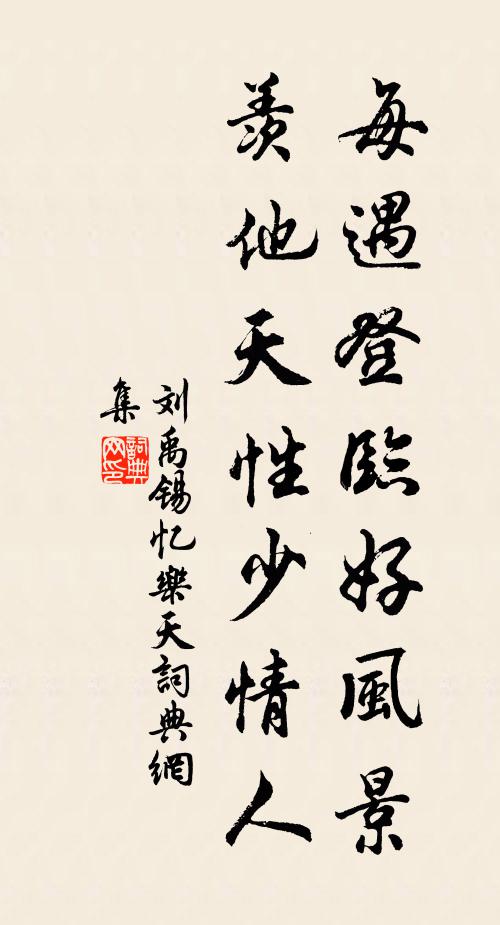 每遇登臨好風景
羨他天性少情人
刘禹锡忆樂天詞典網
集
詞典
网印